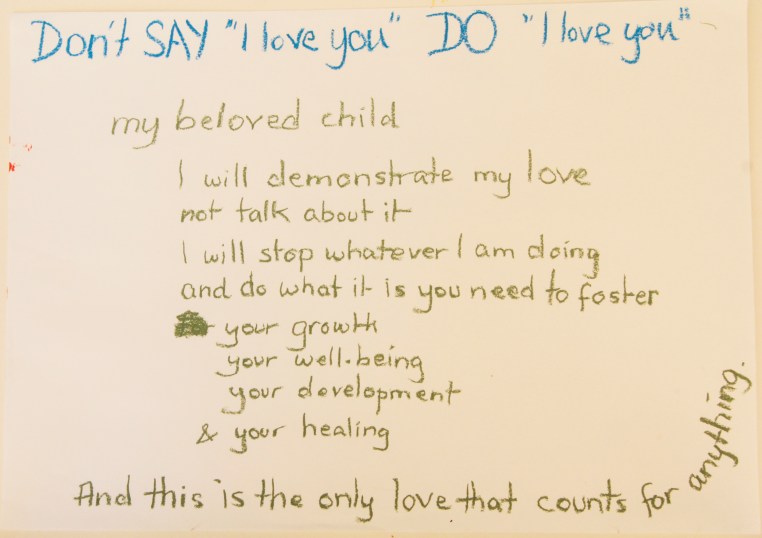 Don't SAY "I love you" DO "I love you"
my beloved child
I will demonstrate my love
not talk about it
I will stop whatever I am doing
and do what it is you need to foster
your growth
your well-being
your development
& your healing
And this is the only love that counts for anything.